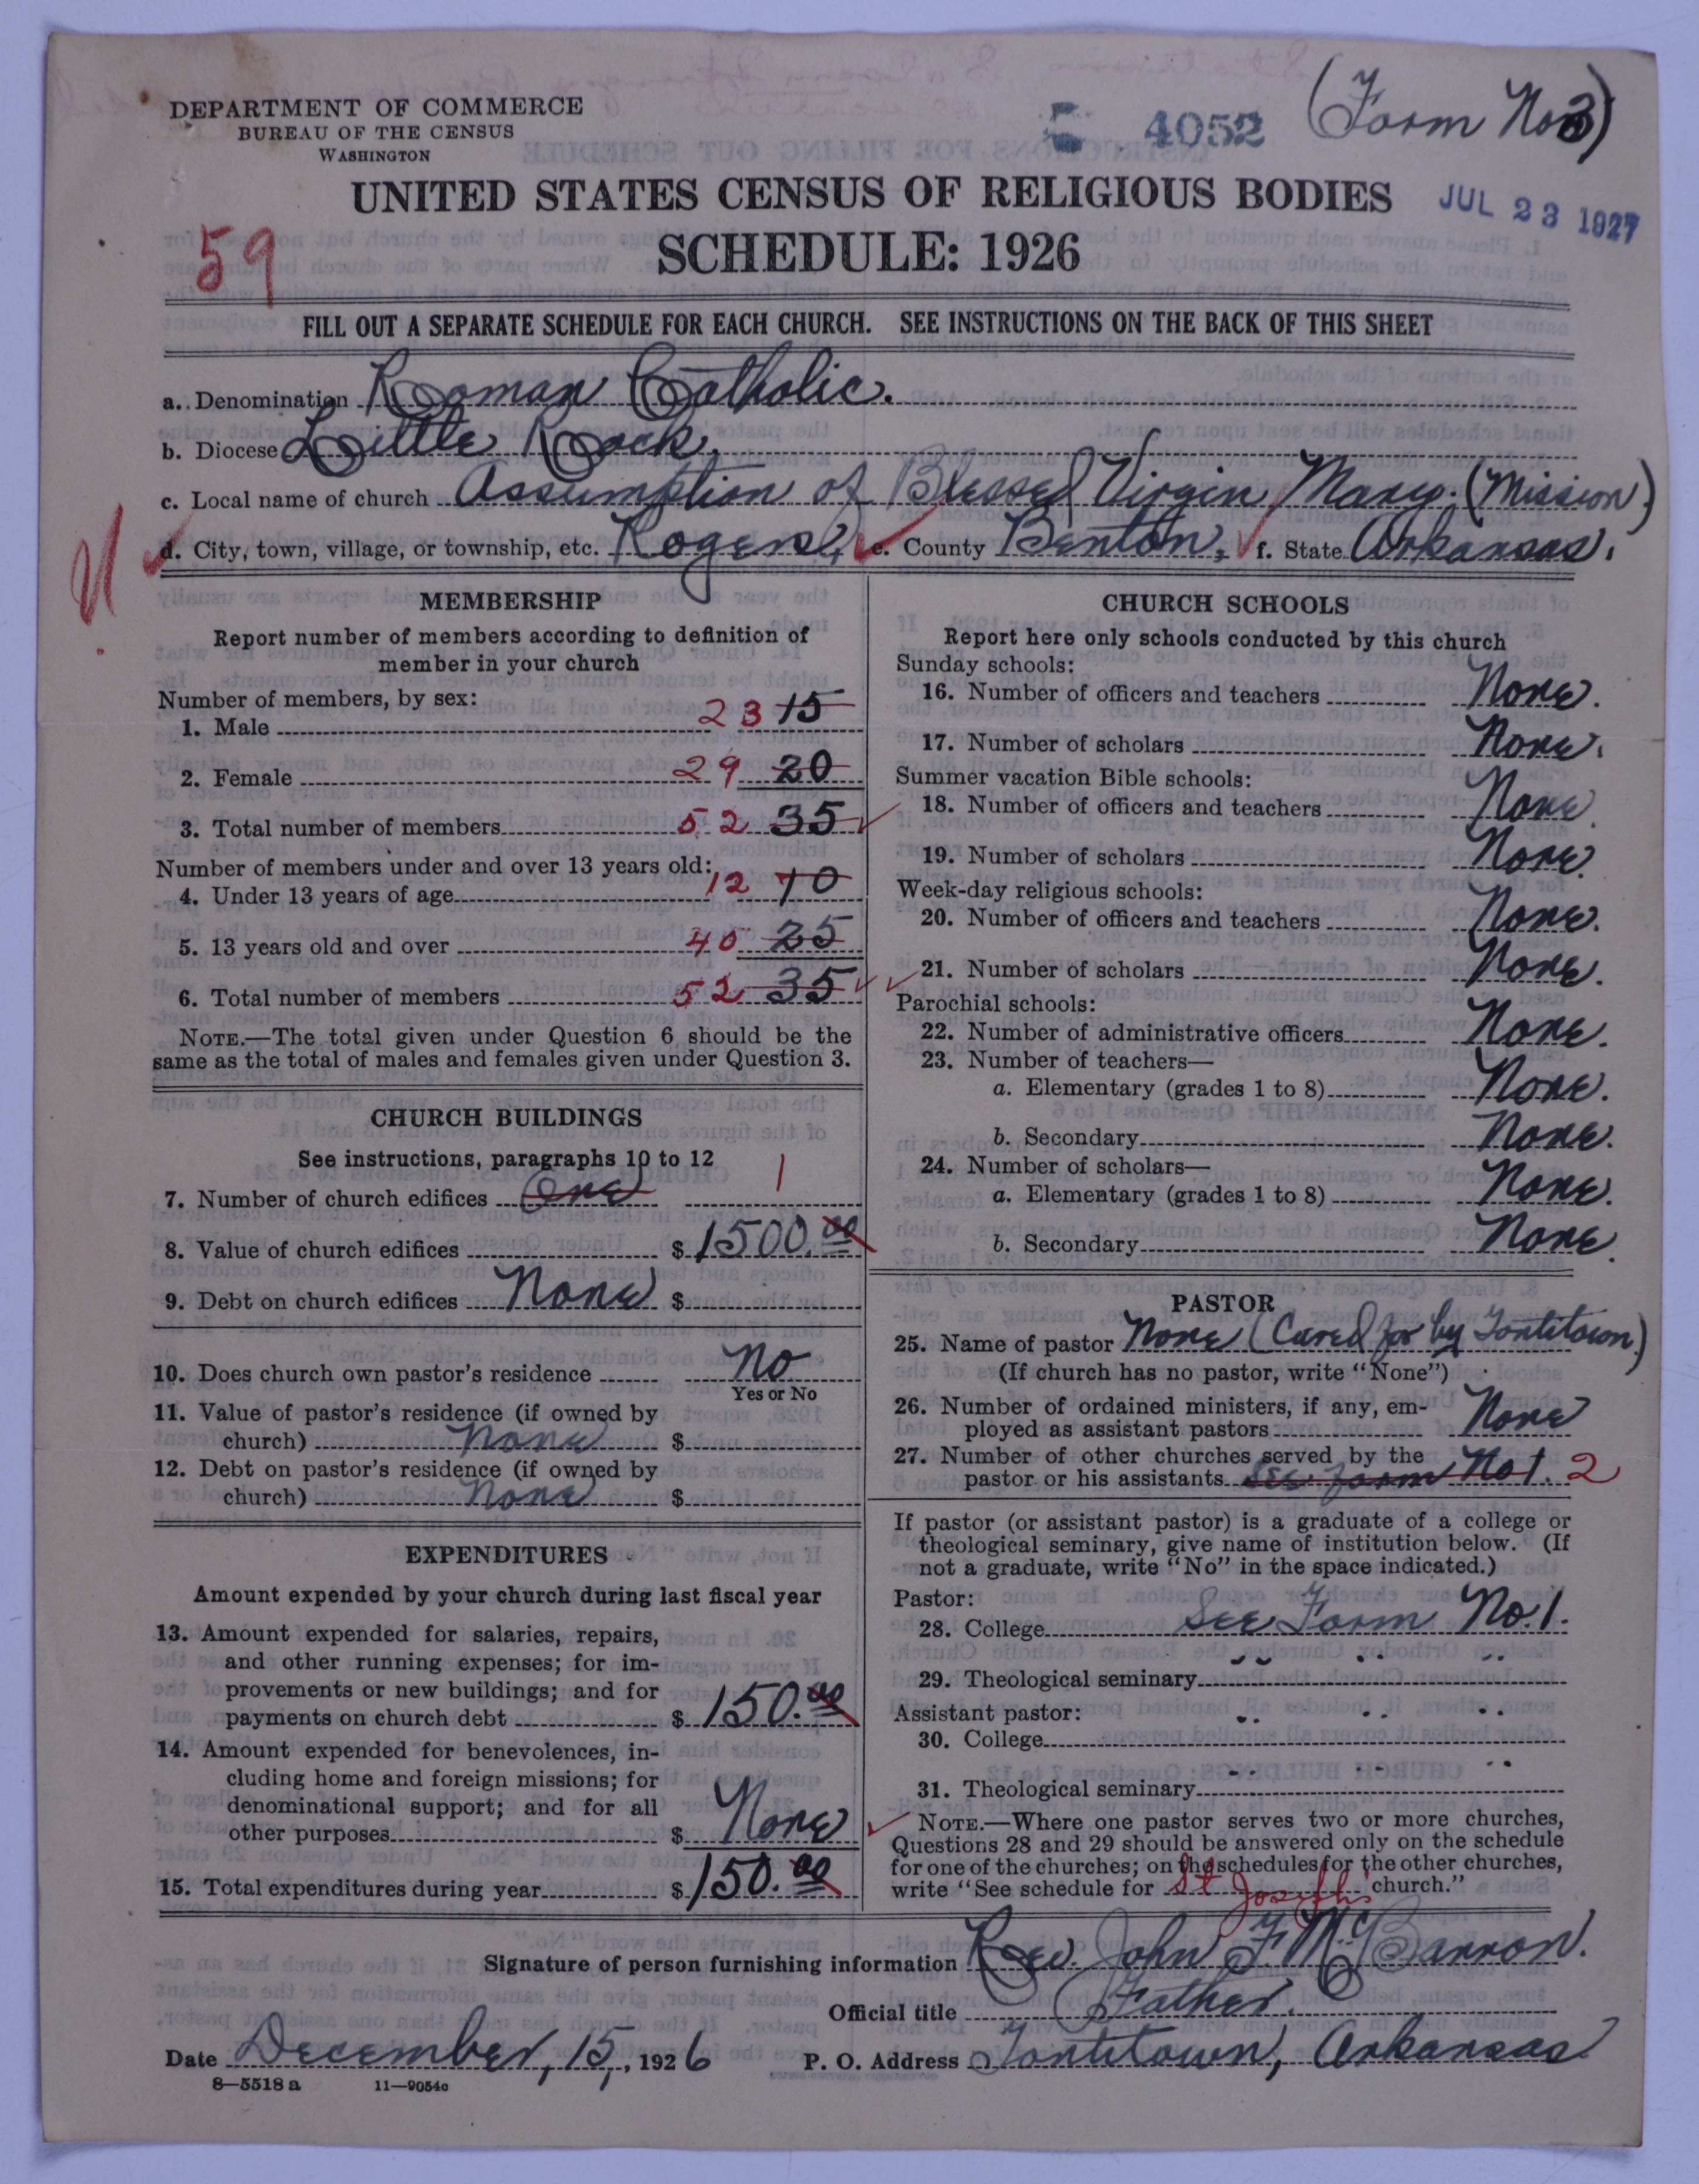 (Form No 3)
DEPARTMENT OF COMMERCE
BUREAU OF THE CENSUS
WASHINGTON
4052
UNITED STATES CENSUS OF RELIGIOUS BODIES
JUL 23 1927
59
SCHEDULE: 1926
FILL OUT A SEPARATE SCHEDULE FOR EACH CHURCH. SEE INSTRUCTIONS ON THE BACK OF THIS SHEET
a. Denomination Roman Catholic.
b. Diocese Little Rock.
c. Local name of church Assumption of Blessed Virgin Mary. (Mission)
d. City, town, village, or township, etc. Rogers, e. County Benton, f. State Arkansas.
MEMBERSHIP
Report number of members according to definition of
member in your church
Number of members, by sex:
1. Male 23 15
2. Female 29 20
3. Total number of members 52 35
Number of members under and over 13 years old:
4. Under 13 years of age 12 10
5. 13 years old and over 40 25
6. Total number of members 52 35
NOTE.—The total given under Question 6 should be the
same as the total of males and females given under Question 3.
CHURCH BUILDINGS
See instructions, paragraphs 10 to 12
7. Number of church edifices One 1
8. Value of church edifices $ 1500.00
9. Debt on church edifices None $
10. Does church own pastor's residence No
Yes or No
11. Value of pastor's residence (if owned by
church) None $
12. Debt on pastor's residence (if owned by
church) None $
EXPENDITURES
Amount expended by your church during last fiscal year
13. Amount expended for salaries, repairs,
and other running expenses; for im-
provements or new buildings; and for
payments on church debt $ 150.00
14. Amount expended for benevolences, in-
cluding home and foreign missions; for
denominational support; and for all
other purposes $ None
15. Total expenditures during year $ 150.00
CHURCH SCHOOLS
Report here only schools conducted by this church
Sunday schools:
16. Number of officers and teachers None.
17. Number of scholars None.
Summer vacation Bible schools:
18. Number of officers and teachers None.
19. Number of scholars None.
Week-day religious schools:
20. Number of officers and teachers None.
21. Number of scholars None.
Parochial schools:
22. Number of administrative officers None.
23. Number of teachers—
a. Elementary (grades 1 to 8) None.
b. Secondary None.
24. Number of scholars—
a. Elementary (grades 1 to 8) None.
b. Secondary None.
PASTOR
25. Name of pastor None (Cared for by Tontitown.)
(If church has no pastor, write "None")
26. Number of ordained ministers, if any, em-
ployed as assistant pastors None
27. Number of other churches served by the
pastor or his assistants See form No 1. 2
If pastor (or assistant pastor) is a graduate of a college or
theological seminary, give name of institution below. (If
not a graduate, write "No" in the space indicated.)
Pastor:
28. College See Form No. 1.
29. Theological seminary " " "
Assistant pastor:
30. College " " "
31. Theological seminary " " "
NOTE.—Where one pastor serves two or more churches,
Questions 28 and 29 should be answered only on the schedule
for one of the churches; on the schedules for the other churches,
write "See schedule for St Josephs church."
Signature of person furnishing information Rev. John F. McBarron.
Official title Father.
Date December, 15, 1926 P. O. Address Tontitown, Arkansas
8—5518 a 11—9054c